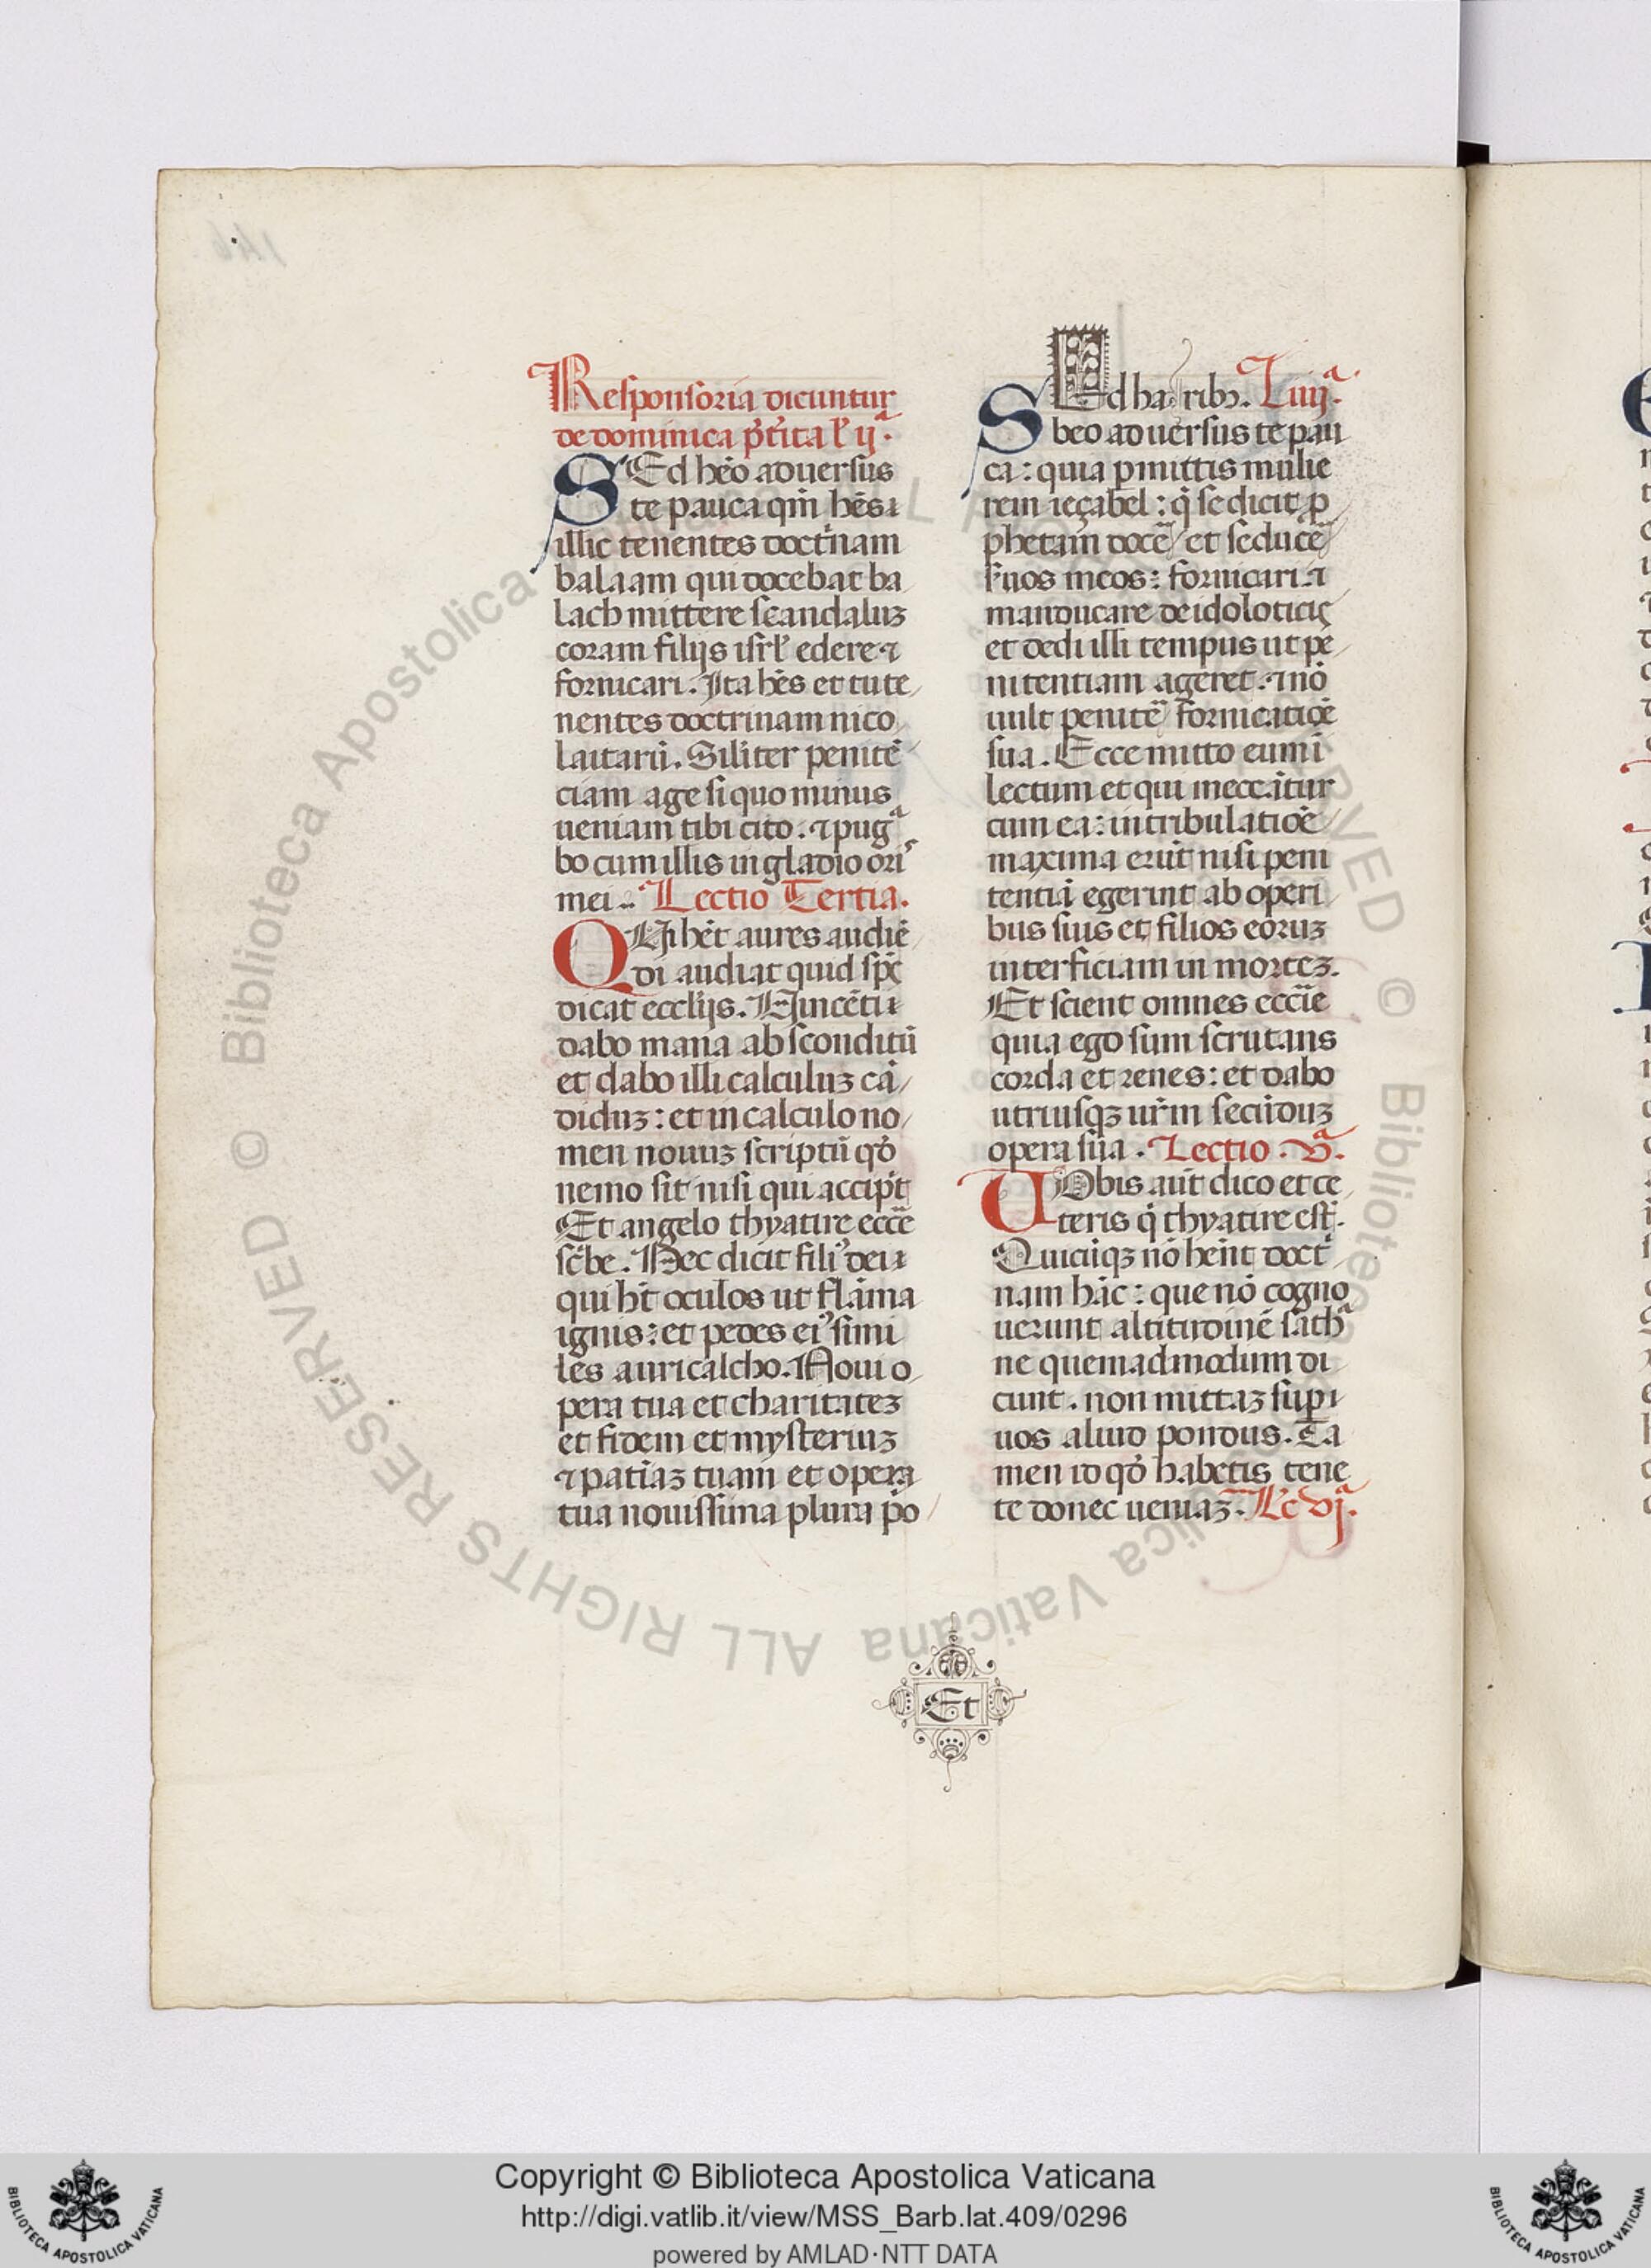 Responsoria dicuntur
de dominica p̄t̄ita ł ij.ª
SEd hēo aduersus
te pauca qm̄ hēs i
illic tenentes doct̓nam
balaam qui docebat ba
lach mittere scandaluʒ
coram filijs isrł edere ⁊
fornicari. Ita hēs et tu te
nentes doctrinam nico
laitarū. Siliter penitē
ciam age si quo minus
ueniam tibi cito. ⁊ pugª
bo cum illis in gladio ori᾽
mei .. Lectio Tertia.
QUi hēt aures audiē
di audiat quid sp̄c
dicat eccłijs. Uincēti
dabo mana absconditū
et dabo illi calculuʒ cā
diduʒ: et in calculo no
men nouuʒ scriptū qd̓
nemo sit nisi qui accip̓t
Et angelo thyatire ecc̄e
sc̓be. Hec dicit fili᾽ dei
qui ht̄ oculos ut flāma
ignis: et pedes ei᾽ simi
les auricalcho. Noui o
pera tua et charitateʒ
et fidem et mysteriuʒ
⁊ patīaʒ tuam et opera
tua nouissima plura p̓o
SEd ha ribꝫ. L iiijª.
beo aduersus te pau
ca: quia ꝑmittis mulie
rem ieçabel: q̄ se dicit ꝓ
phetam docē et seducē
s̓uos meos: fornicari ⁊
manducare de idoloticiç
et dedi illi tempus ut pe
nitentiam ageret. ⁊ nō
uult penitē fornicatiōe
sua. Ecce mitto eum ī
lectum et qui mecātur
cum ea: in tribulatiōe
maxima erūt nisi peni
tentiā egerint ab operi
bus suis et filios eoruʒ
interficiam in morteʒ.
Et scient omnes ecc̄ie
quia ego sum scrutans
corda et renes: et dabo
utriusqʒ ur̄m secūduʒ
opera sua. Lectio .vª.
UObis aūt dico et ce
teris q̓ thyatire est᾽.
Quicūqʒ nō hēnt doct̓
nam hāc: que nō cogno
uerunt altitudinē sathª
ne quemadmodum di
cunt. non mittaʒ suꝑ
uos aliud pondus. Ta
men id qd̓ habetis tene
te donec ueniaʒ. Łc vjª.
Et
© Biblioteca Apostolica Vaticana ALL RIGHTS RESERVED
Copyright © Biblioteca Apostolica Vaticana
http://digi.vatlib.it/view/MSS_Barb.lat.409/0296
powered by AMLAD·NTT DATA
BIBLIOTECA APOSTOLICA VATICANA
BIBLIOTECA APOSTOLICA VATICANA